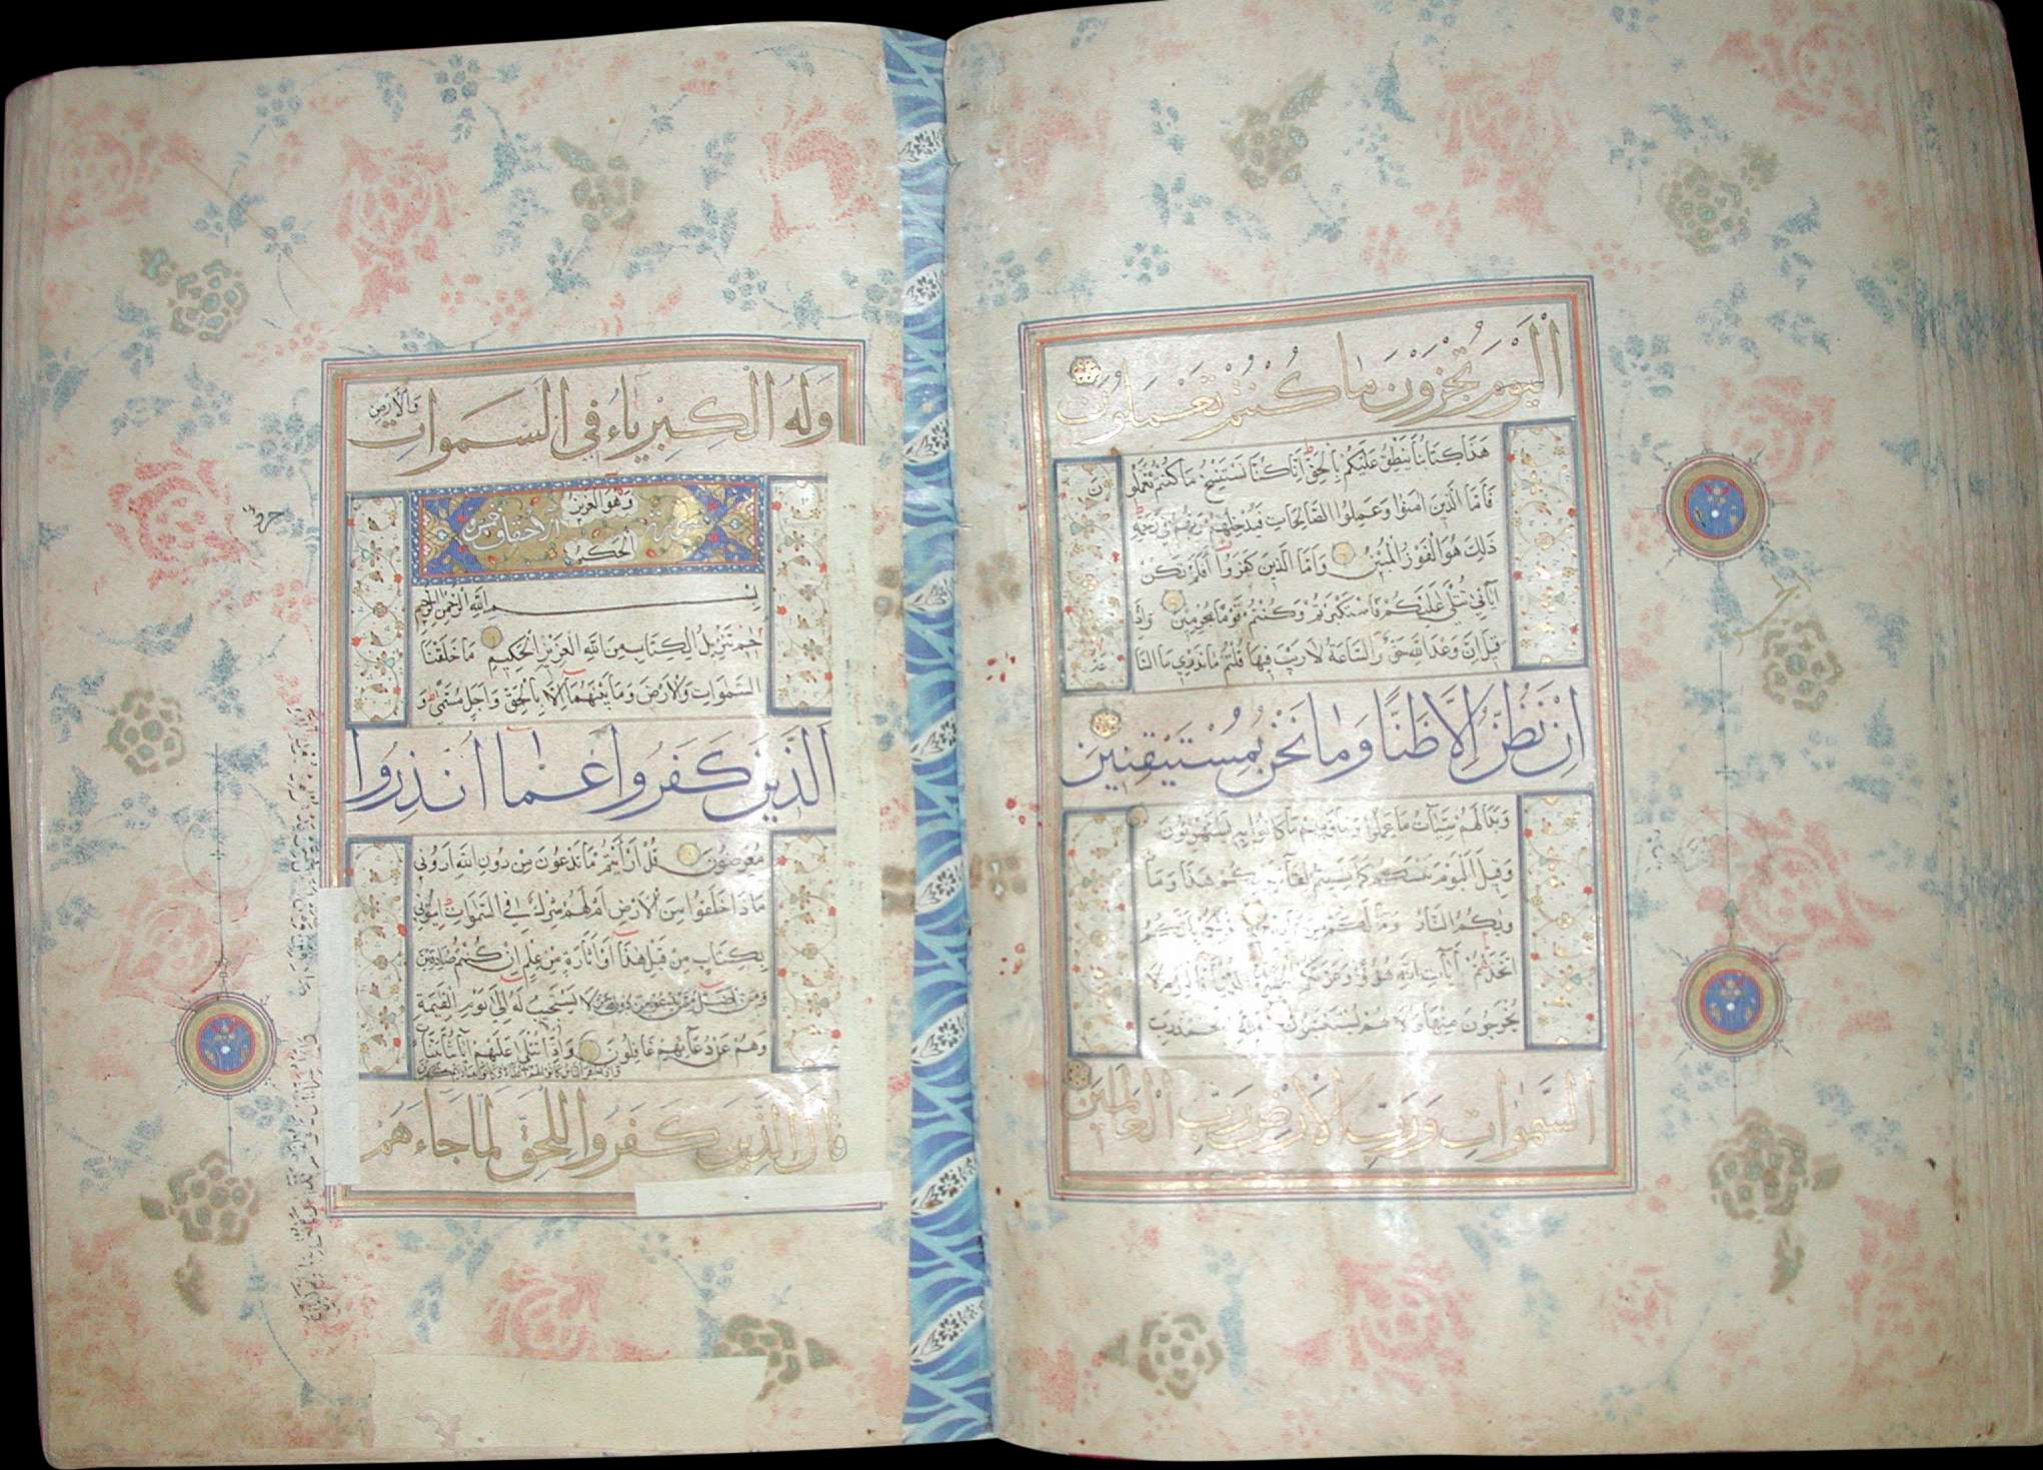 الْيَوْمَ تُجْزَوْنَ مَا كُنْتُمْ تَعْمَلُونَ
هَذَا كِتَابُنَا يَنْطِقُ عَلَيْكُمْ بِالْحَقِّ إِنَّا كُنَّا نَسْتَنْسِخُ مَا كُنْتُمْ تَعْمَلُونَ
فَأَمَّا الَّذِينَ آمَنُوا وَعَمِلُوا الصَّالِحَاتِ فَيُدْخِلُهُمْ رَبُّهُمْ فِي رَحْمَتِهِ
ذَلِكَ هُوَ الْفَوْزُ الْمُبِينُ وَأَمَّا الَّذِينَ كَفَرُوا أَفَلَمْ تَكُنْ
آيَاتِي تُتْلَى عَلَيْكُمْ فَاسْتَكْبَرْتُمْ وَكُنْتُمْ قَوْمًا مُجْرِمِينَ وَإِذَا
قِيلَ إِنَّ وَعْدَ اللَّهِ حَقٌّ وَالسَّاعَةُ لَا رَيْبَ فِيهَا قُلْتُمْ مَا نَدْرِي مَا السَّاعَةُ
إِنْ نَظُنُّ إِلَّا ظَنًّا وَمَا نَحْنُ بِمُسْتَيْقِنِينَ
وَبَدَا لَهُمْ سَيِّئَاتُ مَا عَمِلُوا وَحَاقَ بِهِمْ مَا كَانُوا بِهِ يَسْتَهْزِئُونَ
وَقِيلَ الْيَوْمَ نَنْسَاكُمْ كَمَا نَسِيتُمْ لِقَاءَ يَوْمِكُمْ هَذَا وَمَأْ
وَيكُمُ النَّارُ وَمَا لَكُمْ مِنْ نَاصِرِينَ ذَلِكُمْ بِأَنَّكُمُ
اتَّخَذْتُمْ آيَاتِ اللَّهِ هُزُوًا وَغَرَّتْكُمُ الْحَيَاةُ الدُّنْيَا فَالْيَوْمَ لَا
يُخْرَجُونَ مِنْهَا وَلَا هُمْ يُسْتَعْتَبُونَ فَلِلَّهِ الْحَمْدُ رَبِّ
السَّمَوَاتِ وَرَبِّ الْأَرْضِ رَبِّ الْعَالَمِينَ
وَلَهُ الْكِبْرِيَاءُ فِي السَّمَوَاتِ وَالْأَرْضِ
وَهُوَ الْعَزِيزُ
سورة الاحقاف خمس
الْحَكِيمُ
بِسْمِ اللَّهِ الرَّحْمَنِ الرَّحِيمِ
حم تَنْزِيلُ الْكِتَابِ مِنَ اللَّهِ الْعَزِيزِ الْحَكِيمِ مَا خَلَقْنَا
السَّمَوَاتِ وَالْأَرْضَ وَمَا بَيْنَهُمَا إِلَّا بِالْحَقِّ وَأَجَلٍ مُسَمًّى وَ
الَّذِينَ كَفَرُوا عَمَّا أُنْذِرُوا
مُعْرِضُونَ قُلْ أَرَأَيْتُمْ مَا تَدْعُونَ مِنْ دُونِ اللَّهِ أَرُونِي
مَاذَا خَلَقُوا مِنَ الْأَرْضِ أَمْ لَهُمْ شِرْكٌ فِي السَّمَوَاتِ ائْتُونِي
بِكِتَابٍ مِنْ قَبْلِ هَذَا أَوْ أَثَارَةٍ مِنْ عِلْمٍ إِنْ كُنْتُمْ صَادِقِينَ
وَمَنْ أَضَلُّ مِمَّنْ يَدْعُو مِنْ دُونِ اللَّهِ مَنْ لَا يَسْتَجِيبُ لَهُ إِلَى يَوْمِ الْقِيَمَةِ
وَهُمْ عَنْ دُعَائِهِمْ غَافِلُونَ وَإِذَا تُتْلَى عَلَيْهِمْ آيَاتُنَا بَيِّنَاتٍ
قَالَ الَّذِينَ كَفَرُوا لِلْحَقِّ لَمَّا جَاءَهُمْ